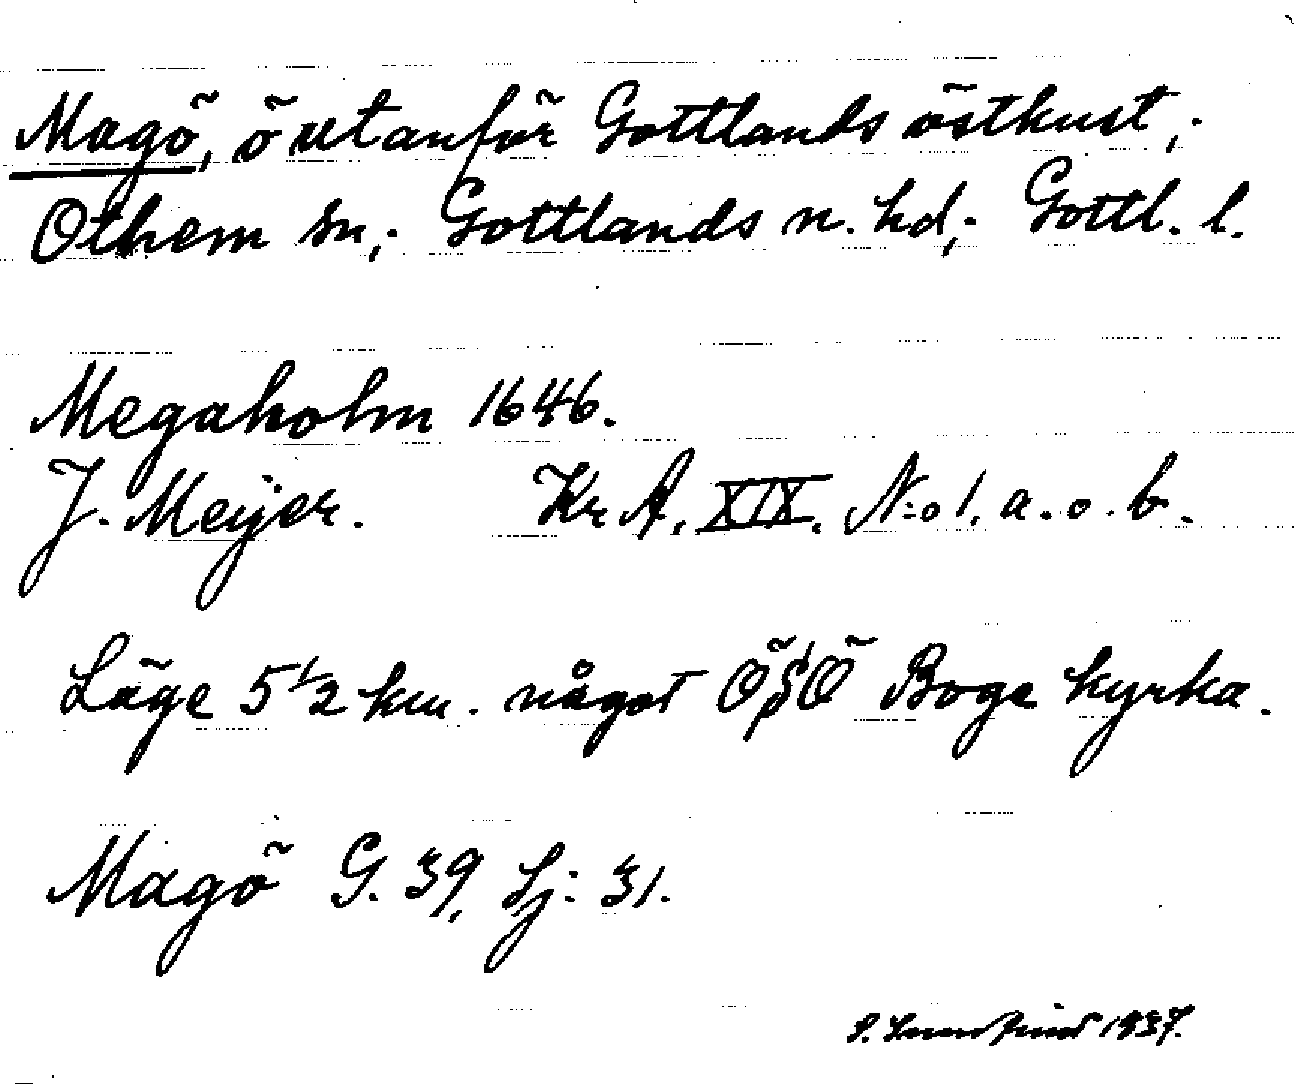 Magö, ö utanför Gottlands östkust,.
Othem sn,. Gottlands n. hd,. Gottl. l.
Megaholm 1646.
J. Meijer. Kr A. XIX. N:o 1. a. o. b.
Läge 5 1/2 km. något ÖSÖ Boge kyrka.
Magö G. 39, Sj: 31.
1937.